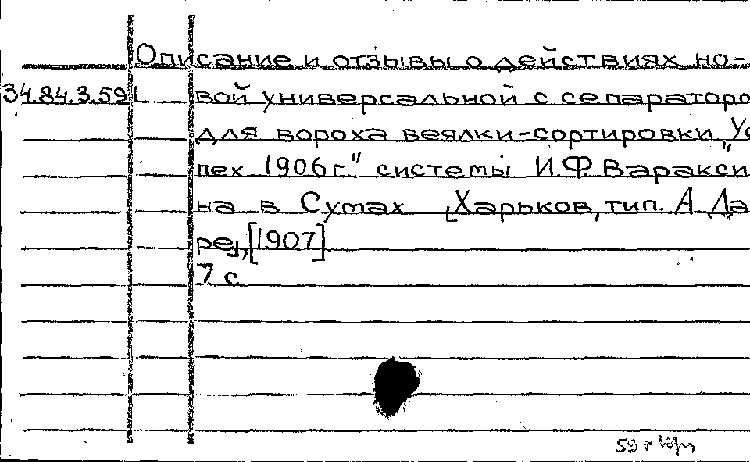 Описание и отзывы о действиях но-
34.84.3.591 вой универсальной с сепараторо
для вороха веялки-сортировки „Ус
пех 1906г." системы И.ФВаракси
на в Сумах [Харьков, тип. А Да
ре], [1907]
7 с
59 г